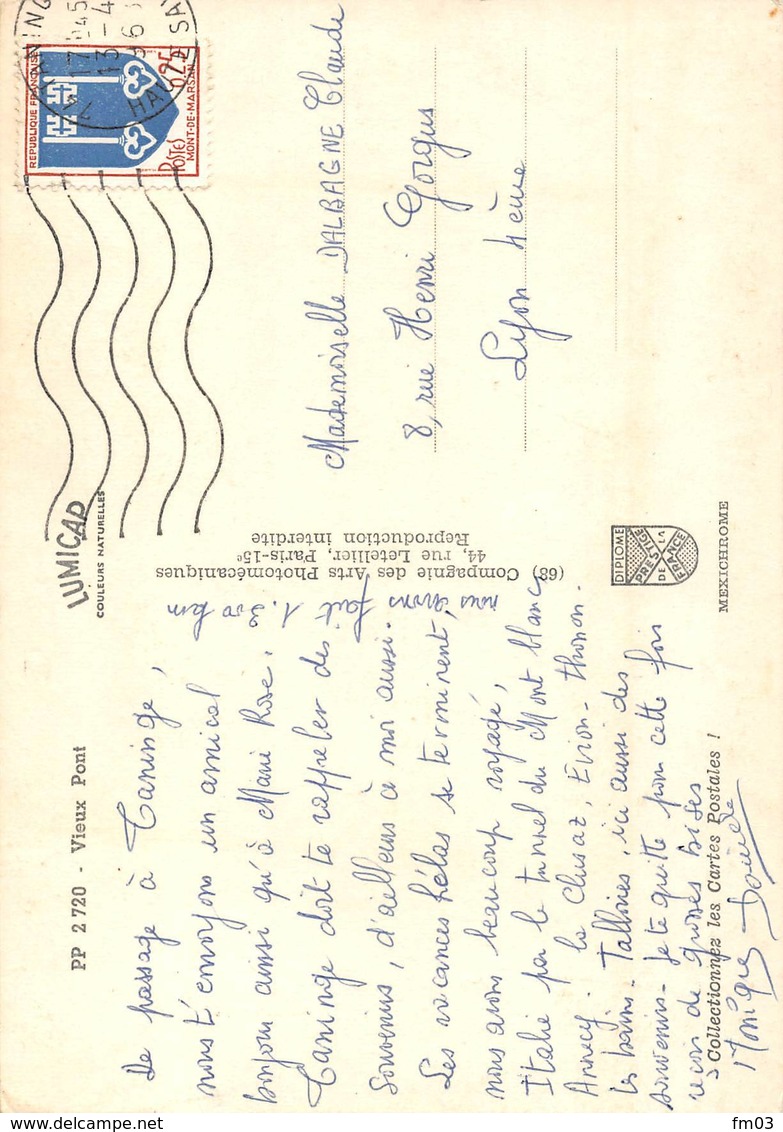 PP 2720 - Vieux Pont
De passage à Taninge,
nous t'envoyons un amical
bonjour ainsi qu'à Marie Rose.
Taninge doit te rappeler des
souvenirs, d'ailleurs à moi aussi.
Les vacances hélas se terminent,
nous avons fait 1.300 km
nous avons beaucoup voyagé,
Italie par le tunnel du Mont blanc
Annecy. la Clusaz, Evian - thonon -
les bains - Talloires, ici aussi des
souvenirs - Je te quitte pour cette fois
reçois de grosses bises
Monique
LUMICAP
COULEURS NATURELLES
(68) Compagnie des Arts Photomécaniques
44, rue Letellier, Paris-15e
Reproduction interdite
DIPLOME
PRESTIGE
DE LA
FRANCE
MEXICHROME
Collectionnez les Cartes Postales !
REPUBLIQUE FRANÇAISE
0,25
POSTES
MONT-DE-MARSAN
TANING
17 45
13 - 4
HAUTE SAV
Mademoiselle DALBAGNE Claude
8, rue Henri Gorgus
Lyon 4ème
fm03